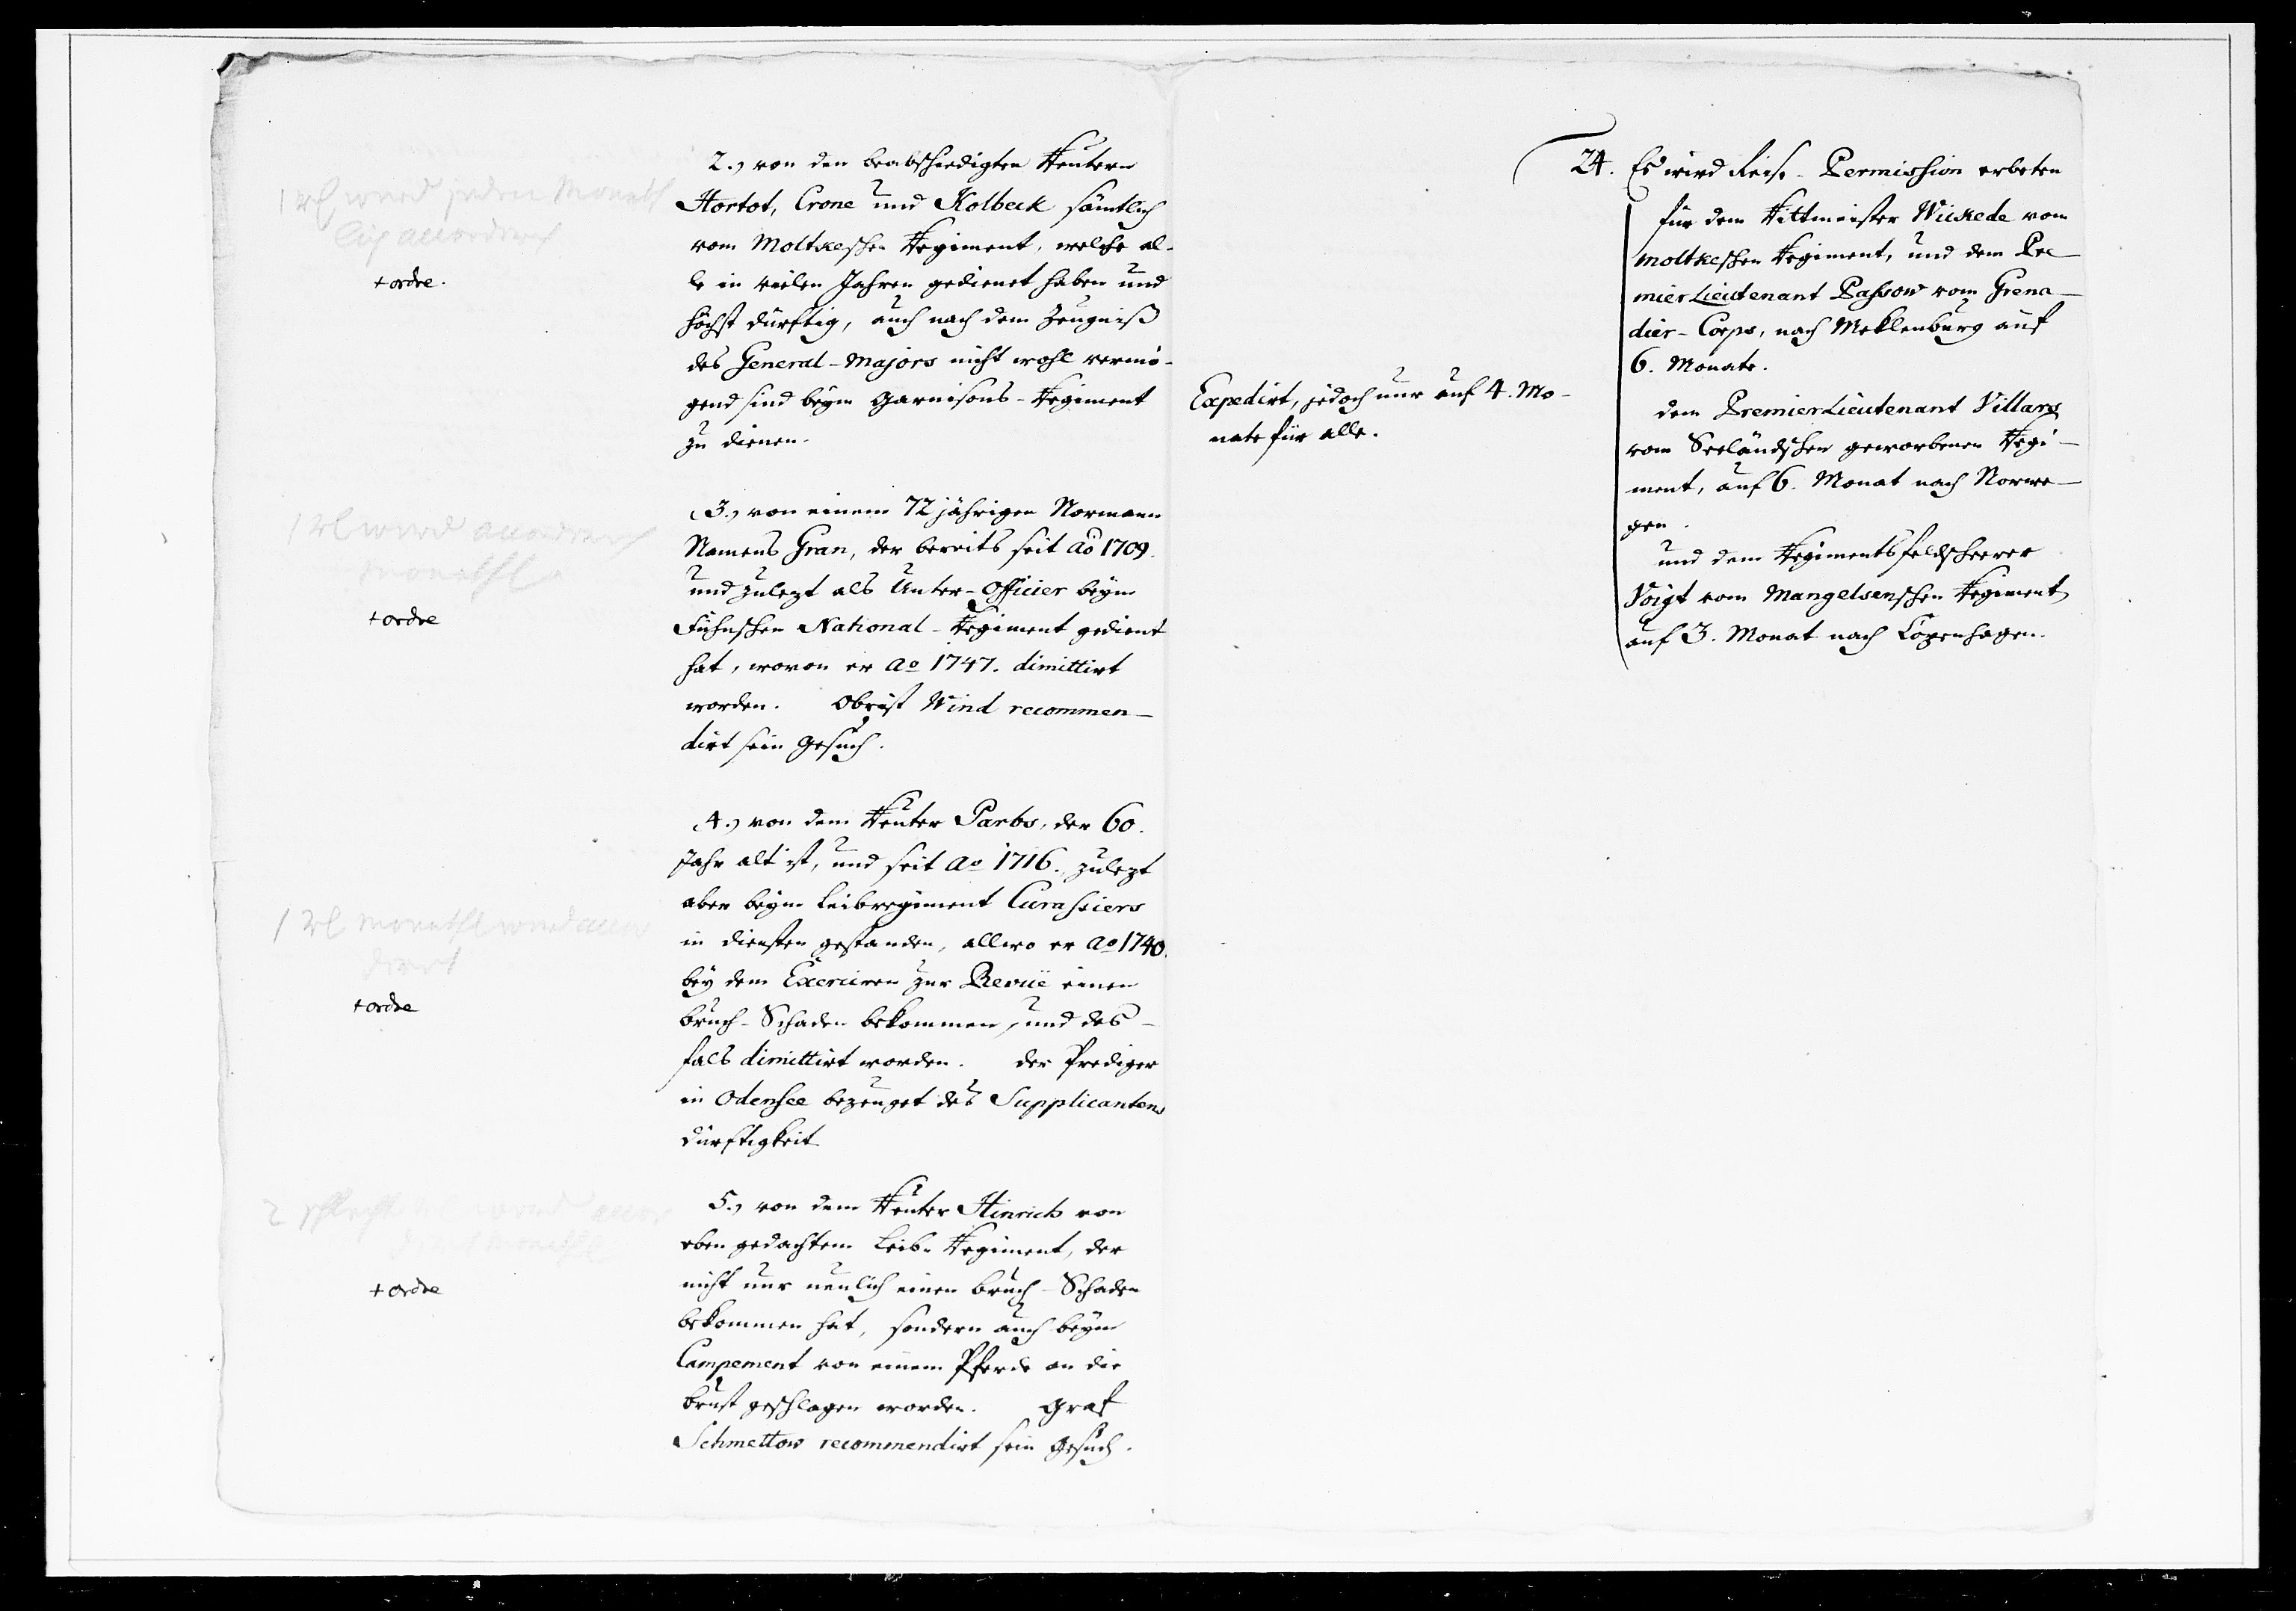 2.) von den beabschiedigten Reutern
Hortot, Crone und Kolbeck sämtlich
vom Moltkeschen Regiment, welche al-
le in vielen Jahren gedienet haben und
höchst dürftig, auch nach dem Zeugniß
des General-Majors nicht wohl vermö-
gend sind beym Garnisons-Regiment
zu dienen.
1 rl wird jeden Monath
accordirt
+ ordre.
3.) von einem 72 jährigen Normann
Namens Gran, der bereits seit Ao 1709.
und zulezt als Unter-Officier beym
Fühnschen National-Regiment gedient
hat, wovon er Ao 1747. dimittirt
worden. Obrist Wind recommen-
dirt sein Gesuch.
1 rl wird accordirt
monathl
+ ordre
4.) von dem Reuter Parbs, der 60.
Jahr alt ist, und seit Ao 1716. zulezt
aber beym Leibregiment Curassiers
in diensten gestanden, allwo er Ao 1740.
bey dem Exerciren zur Revüe einen
bruch-Schaden bekommen, und des-
fals dimittirt worden. der Prediger
in Odensee bezeuget des Supplicantens
dürftigkeit.
1 rl monathl wird accor
dirt
+ ordre
5.) von dem Reuter Hinrich von
eben gedachtem Leib-Regiment, der
nicht nur neulich einen bruch-Schaden
bekommen hat, sondern auch beym
Campement von einem Pferde an die
brust geschlagen worden. Graf
Schmettow recommendirt sein Gesuch.
2 wird accor
dirt monathl
+ ordre
24. Es wird Reise-Permission erbeten
für dem Rittmeister Wickede vom
Moltkeschen Regiment, und dem Pre-
mier Lieutenant Passow vom Grena-
dier-Corps, nach Meklenburg auf
6. Monate.
dem Premier Lieutenant Villars
vom Seeländschen geworbenen Regi-
ment, auf 6. Monat nach Norwe-
gen.
und dem Regimentsfeldscheerer
Voigt vom Mangelsenschen Regiment
auf 3. Monat nach Copenhagen.
Expedirt, jedoch nur auf 4. Mo-
nate für alle.